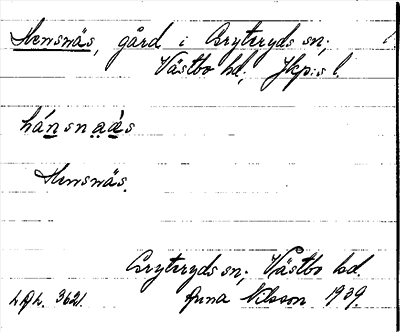 Hensnäs, gård i Bryteryds sn;
Västbo hd; Jkp:s l.
hánsnaàs
Hensnäs.
Bryteryds sn; Västbo hd.
LAL. 3621. Anna Nilsson 1939.